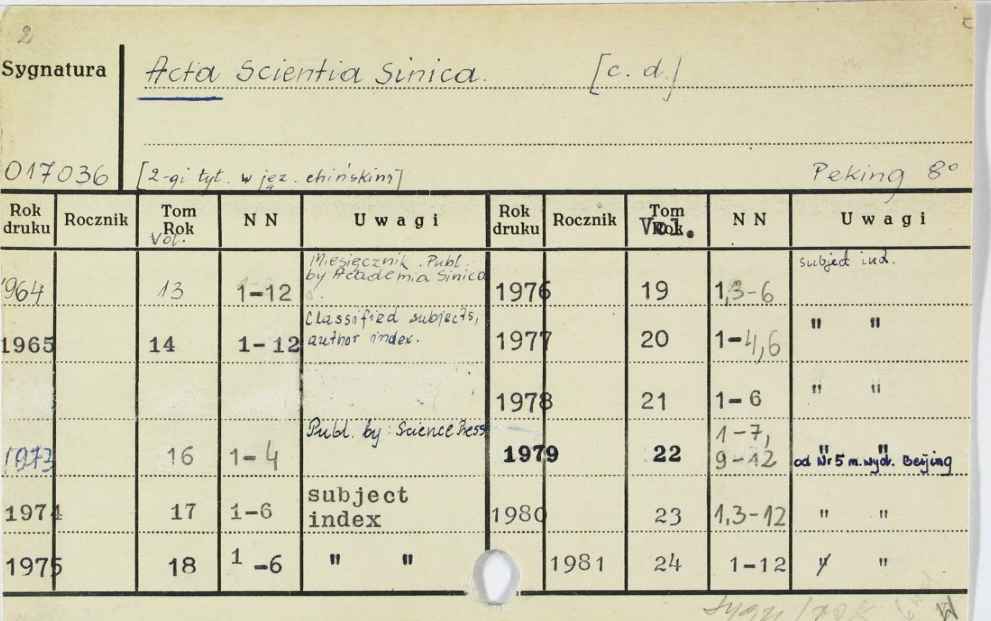 2
Sygnatura
Acta Scientia Sinica. [c. d.]
017036 [2-gi tyt. w jęz. chińskim] Peking 8°
Rok druku Rocznik Tom Rok Vol. N N Uwagi Rok druku Rocznik Tom Rok Vol. N N Uwagi
1964 13 1-12 Miesięcznik. Publ. by Academia Sinica. 1976 19 1,3-6 subject ind.
1965 14 1-12 Classified subjects, author index. 1977 20 1-4,6 " "
1978 21 1-6 " "
1973 16 1-4 Publ. by: Science Press 1979 22 1-7, 9-12 " " od Nr 5 m. wyd. Beijing
1974 17 1-6 subject index 1980 23 1,3-12 " "
1975 18 1-6 " " 1981 24 1-12 " "